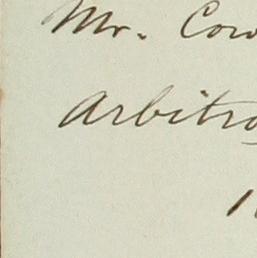 Mr. Cow
Arbitra
1